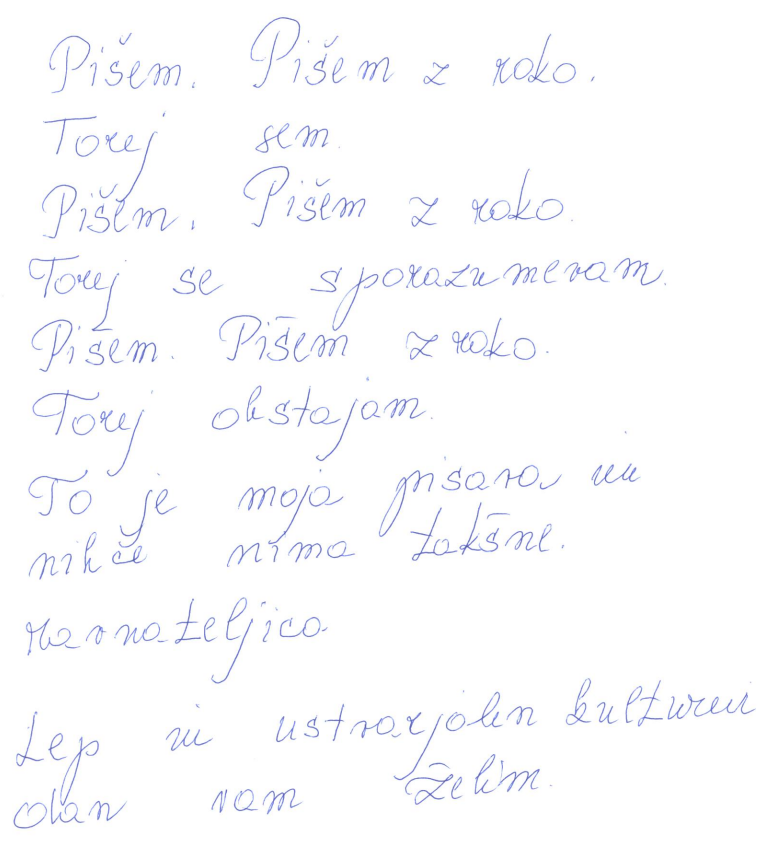 Pišem. Pišem z roko.
Torej sem.
Pišem. Pišem z roko.
Torej se sporazumevam.
Pišem. Pišem z roko.
Torej obstajam.
To je moja pisava in
nihče nima takšne.
ravnateljica
Lep in ustvarjalen kulturni
dan vam želim.